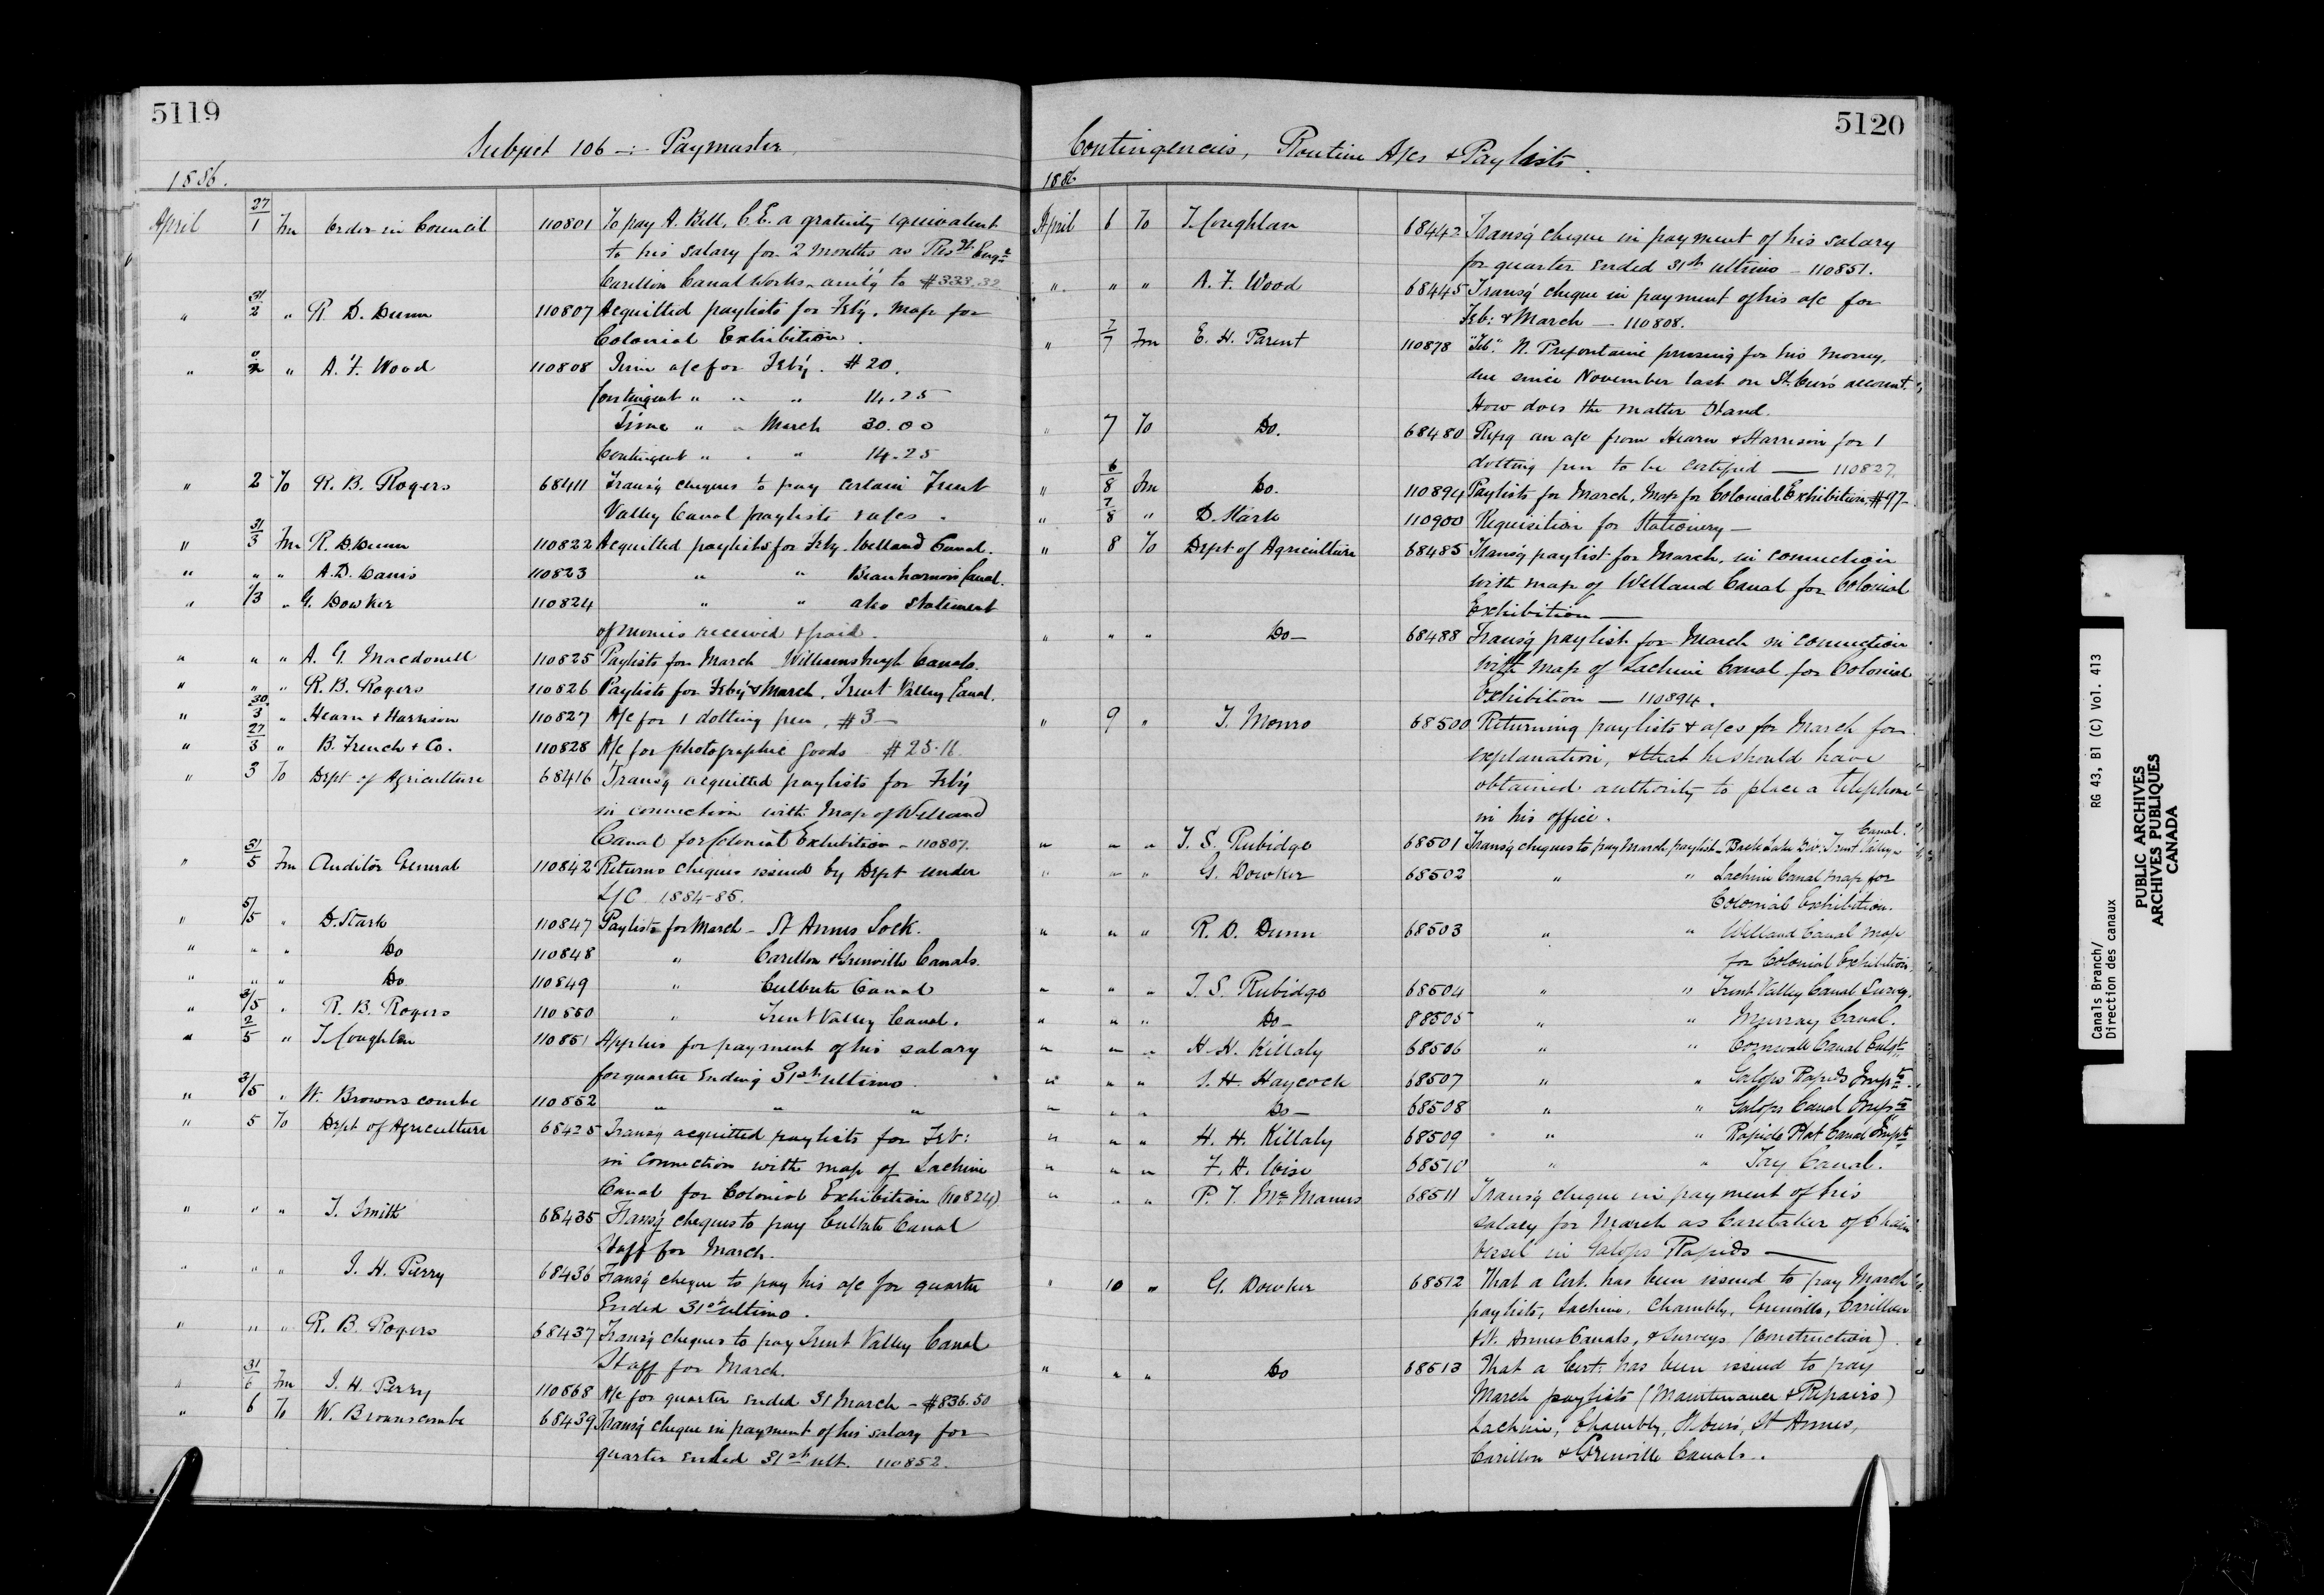 5119
Subject 106 -:- Paymaster
1886.
April 27/1 Fm Order in Council 110801 To pay A. Bell, C.E. a gratuity equivalent
to his salary for 2 months as Engr
Carillon Canal Works, am'tg to $333.32
" 31/2 " R. D. Dunn 110807 Acquitted paylists for Feb'y. Map for
Colonial Exhibition.
" " A. F. Wood 110808 Time a/c for Feb'y. $20.
Contingent " " " 14.25
Time " " March 30.00
Contingent " " " 14.25
" 2 To R. B. Rogers 68411 Transg cheques to pay certain Trent
Valley Canal paylists & a/cs.
" 31/3 Fm R. D. Dunn 110822 Acquitted paylists for Feb'y. Welland Canal.
" " " A. D. Danis 110823 " " Beauharnois Canal.
" 1/3 " G. Dowker 110824 " " also statement
of monies received & paid.
" " " A. G. Macdonell 110825 Paylists for March Williamsburgh Canals.
" " " R. B. Rogers 110826 Paylists for Feb'y & March, Trent Valley Canal.
" 30/3 " Hearn & Harrison 110827 A/c for 1 dotting pen, $3 -
" 27/3 " B. French & Co. 110828 A/c for photographic goods $25.11
" 3 To Dept of Agriculture 68416 Transg acquitted paylists for Feb'y
in connection with Map of Welland
Canal for Colonial Exhibition - 110807.
" 31/5 Fm Auditor General 110842 Returns cheques issued by Dept under
L/C 1884-85.
" 5/5 " D. Stark 110847 Paylists for March - St Annes Lock.
" " " Do 110848 " Carillon & Grenville Canals.
" " " Do. 110849 " Culbute Canal
" 3/5 " R. B. Rogers 110850 " Trent Valley Canal.
" 2/5 " T. Coughlan 110851 Applies for payment of his salary
for quarter ending 31st ultimo.
" 3/5 " W. Brownscombe 110852 " " "
" 5 To Dept of Agriculture 68425 Transg acquitted paylists for Feb:
in connection with map of Lachine
Canal for Colonial Exhibition (110824)
" " " T. Smith 68435 Transg cheques to pay Culbute Canal
Staff for March.
" " " J. H. Pierry 68436 Transg cheque to pay his a/c for quarter
Ended 31st ultimo.
" " " R. B. Rogers 68437 Transg cheques to pay Trent Valley Canal
Staff for March.
" 31/6 Fm J. H. Perry 110868 A/c for quarter ended 31 March - $836.50
" 6 To W. Brownscombe 68439 Transg cheque in payment of his salary for
quarter ended 31st ult. 110852.
5120
Contingencies, Routine A/cs & Paylists.
1886
April 6 To T. Coughlan 68442 Transg cheque in payment of his salary
for quarter ended 31st ultimo - 110851.
" " " A. F. Wood 68445 Transg cheque in payment of his a/c for
Feb: & March - 110808.
" 7/7 Fm E. H. Parent 110878 "Tel". N. Prefontaine pressing for his money,
due since November last on St. Ours account.
How does the matter stand.
" 7 To Do. 68480 an a/c from Hearn & Harrison for 1
dotting pen to be certified - 110827.
" 6/8 Fm Do. 110894 Paylists for March, Map for Colonial Exhibition, $97-
" 7/8 " D. Stark 110900 Requisition for Stationery -
" 8 To Dept of Agriculture 68485 Transg paylist for March, in connection
with map of Welland Canal for Colonial
Exhibition -
" " " Do - 68488 Transg paylist for March in connection
with map of Lachine Canal for Colonial
Exhibition - 110894.
" 9 " T. Monro 68500 Returning paylists & a/cs for March for
explanation, & that he should have
obtained authority to place a telephone
in his office.
" " " T. S. Rubidge 68501 Transg cheques to pay March paylist - Lake Div. Trent Valley Canal.
" " " G. Dowker 68502 " " Lachine Canal map for
Colonial Exhibition.
" " " R. D. Dunn 68503 " " Welland Canal map
for Colonial Exhibition
" " " T. S. Rubidge 68504 " " Trent Valley Canal Survey.
" " " Do - 88505 " " Murray Canal.
" " " H. H. Killaly 68506 " " Cornwall Canal
" " " S. H. Haycock 68507 " " Galops Rapids Impts
" " " Do - 68508 " " Galops Canal Impts
" " " H. H. Killaly 68509 " " Rapide Plat Canal Impts
" " " F. A. Wise 68510 " " Tay Canal.
" " " P. T. McManus 68511 Transg cheque in payment of his
salary for March as Caretaker of Chain
Vessel in Galops Rapids -
" 10 " G. Dowker 68512 That a Cert. has been issued to pay March
paylists, Lachine, Chambly, Grenville, Carillon
& St. Annes Canals, & Surveys (Construction).
" " " Do 68513 That a Cert: has been issued to pay
March paylists (Maintenance & Repairs)
Lachine, Chambly, St Ours, St Annes,
Carillon & Grenville Canals.
Canals Branch/ RG 43, B1 (C) Vol. 413
Direction des canaux
PUBLIC ARCHIVES
ARCHIVES PUBLIQUES
CANADA